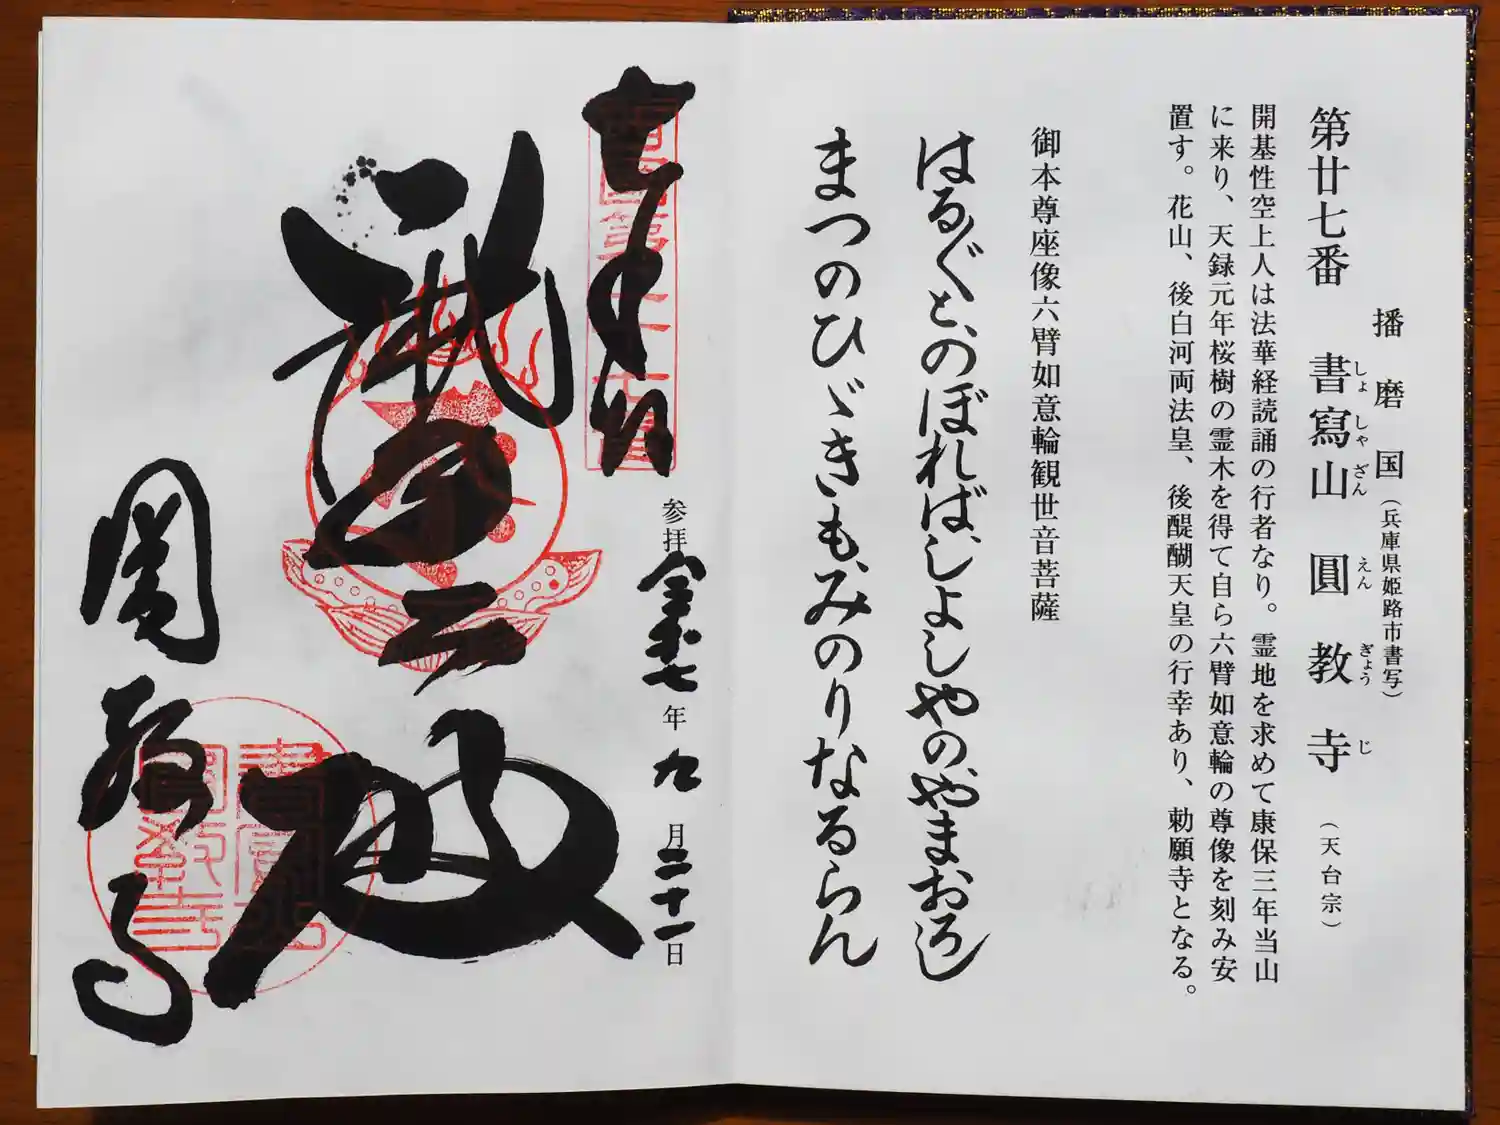 播磨国（兵庫県姫路市書写）
第廿七番 書寫山 圓教寺（天台宗）
しょ しゃ ざん えん ぎょう じ
開基性空上人は法華経読誦の行者なり。霊地を求めて康保三年当山
に来り、天録元年桜樹の霊木を得て自ら六臂如意輪の尊像を刻み安
置す。花山、後白河両法皇、後醍醐天皇の行幸あり、勅願寺となる。
御本尊座像六臂如意輪観世音菩薩
はるゞとのぼればしよしやのやまおろし
まつのひゞきもみのりなるらん
奉拝
西国第二十七番
参拝 令和七年 九月二十一日
摩尼殿
圓教寺
書寫山
圓教寺